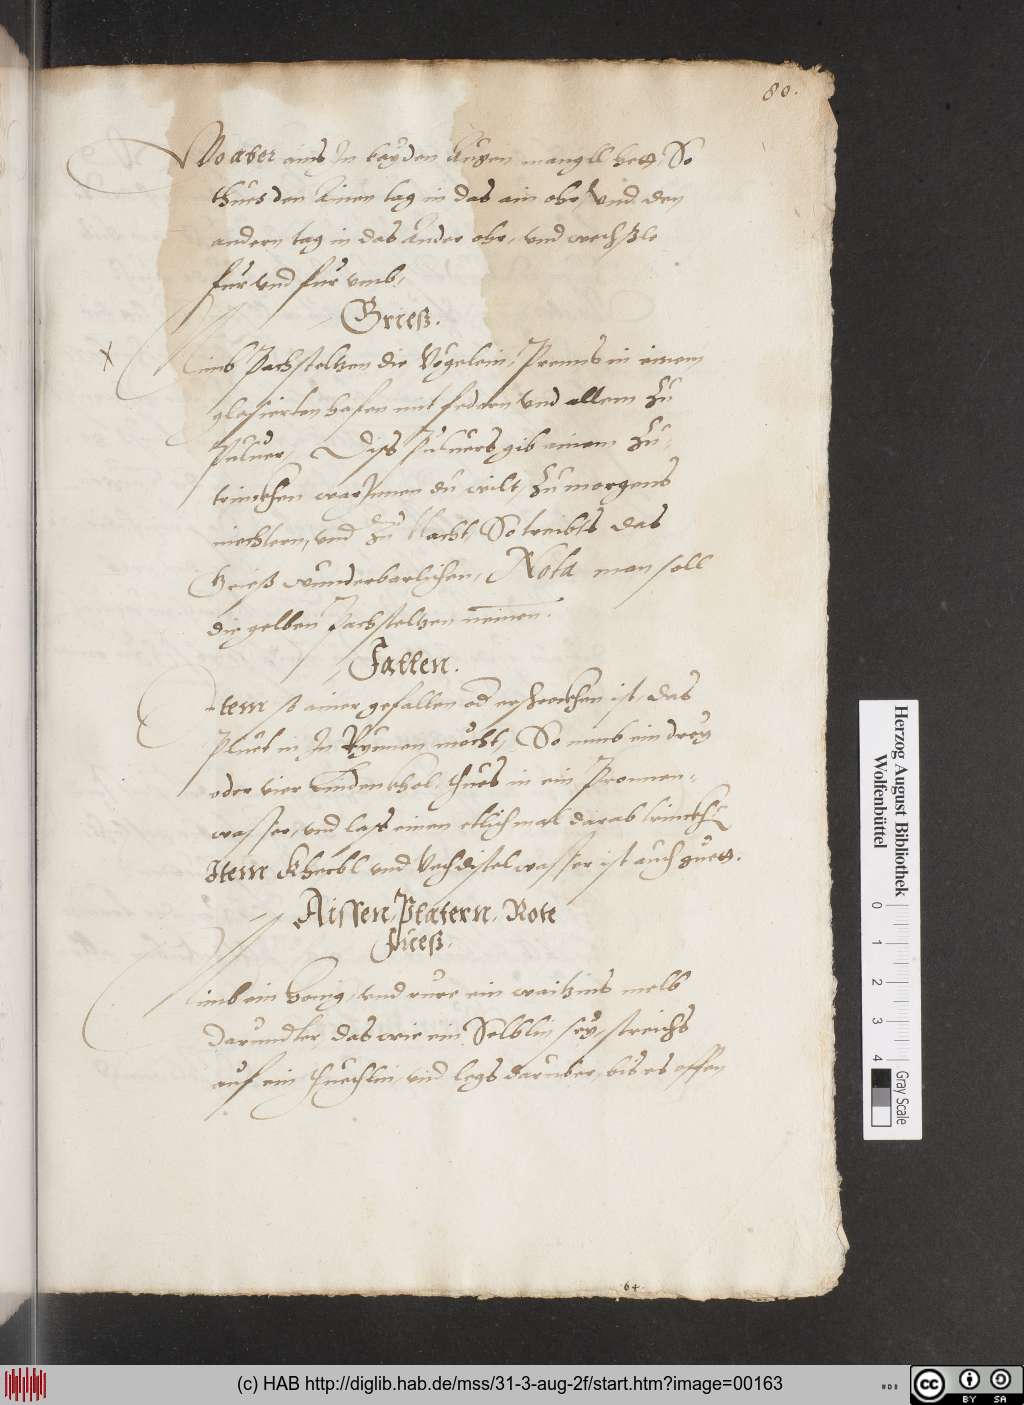 80.
Wo aber ains In bayden Augen mangll hett, So
thues den Ainen tag in das ain ohr, vnd den
andern tag in das Ander ohr, vnd wechßle
für vnd für vmb,
Grieß.
x
Nimb Pachsteltzen die Vögelein, Prenns in einem
glasierten hafen mit federn vnd allem zu
Puluer, Diss Puluers gib ainem zu
trinckhen warJnnen du wilt, zu morgens
niechtern, vnd zu Nacht, So treibts das
Grieß wunderbarlichen, Nota man soll
die gelben Pachsteltzen nemen.
Fallen.
Item so ainer gefallen od erschrockhen ist, das
Pluet in In Rynnen möcht, So nimb ein drey
oder vier Linden khol, thues in ein Pronnen
wasser, vnd lass einen etlich mal darab trinckhen
Item Kherbl vnd Vechdistel wasser ist auch guett.
Aissen, Platern, Rote
Fließ.
Nimb ein honig, vnd rure ein waitzins melb
darundter, das wie ein Selblin sey, streichs
auf ein thuechlin, vnd legs daruber, bis es offen
64
Herzog August Bibliothek
Wolfenbüttel
0 1 2 3 4
Gray Scale
(c) HAB http://diglib.hab.de/mss/31-3-aug-2f/start.htm?image=00163
cc BY SA